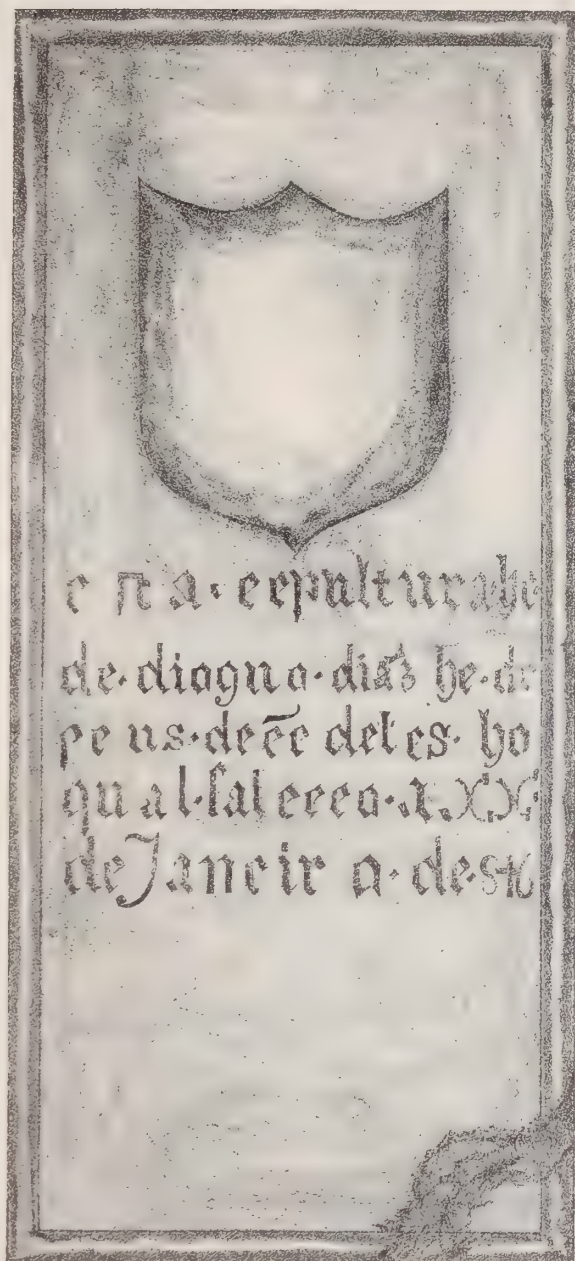 esta·cepulturahe
de·diogno·diaz he·de
ceus·decēdetes·ho
qual·faleceo·a·XX
de Janeiro·de·